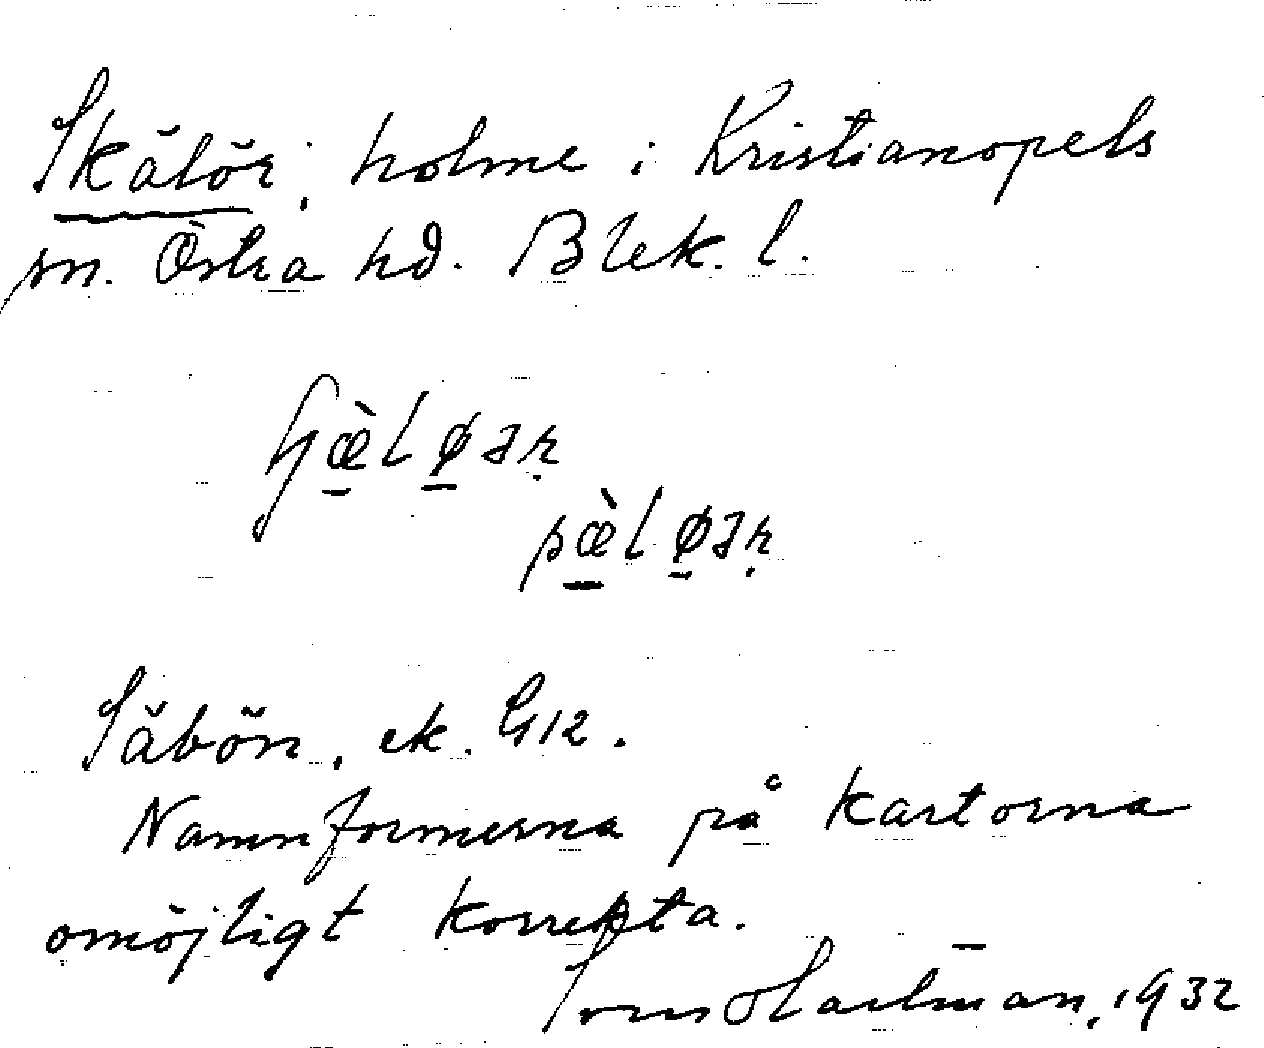 Skälör, holme i Kristianopels
sn. Östra hd. Blek. l.
sæ̀løər
Säbön, ek. G12.
Namnformerna på kartorna
omöjligt korrekta.
Hartman, 1932